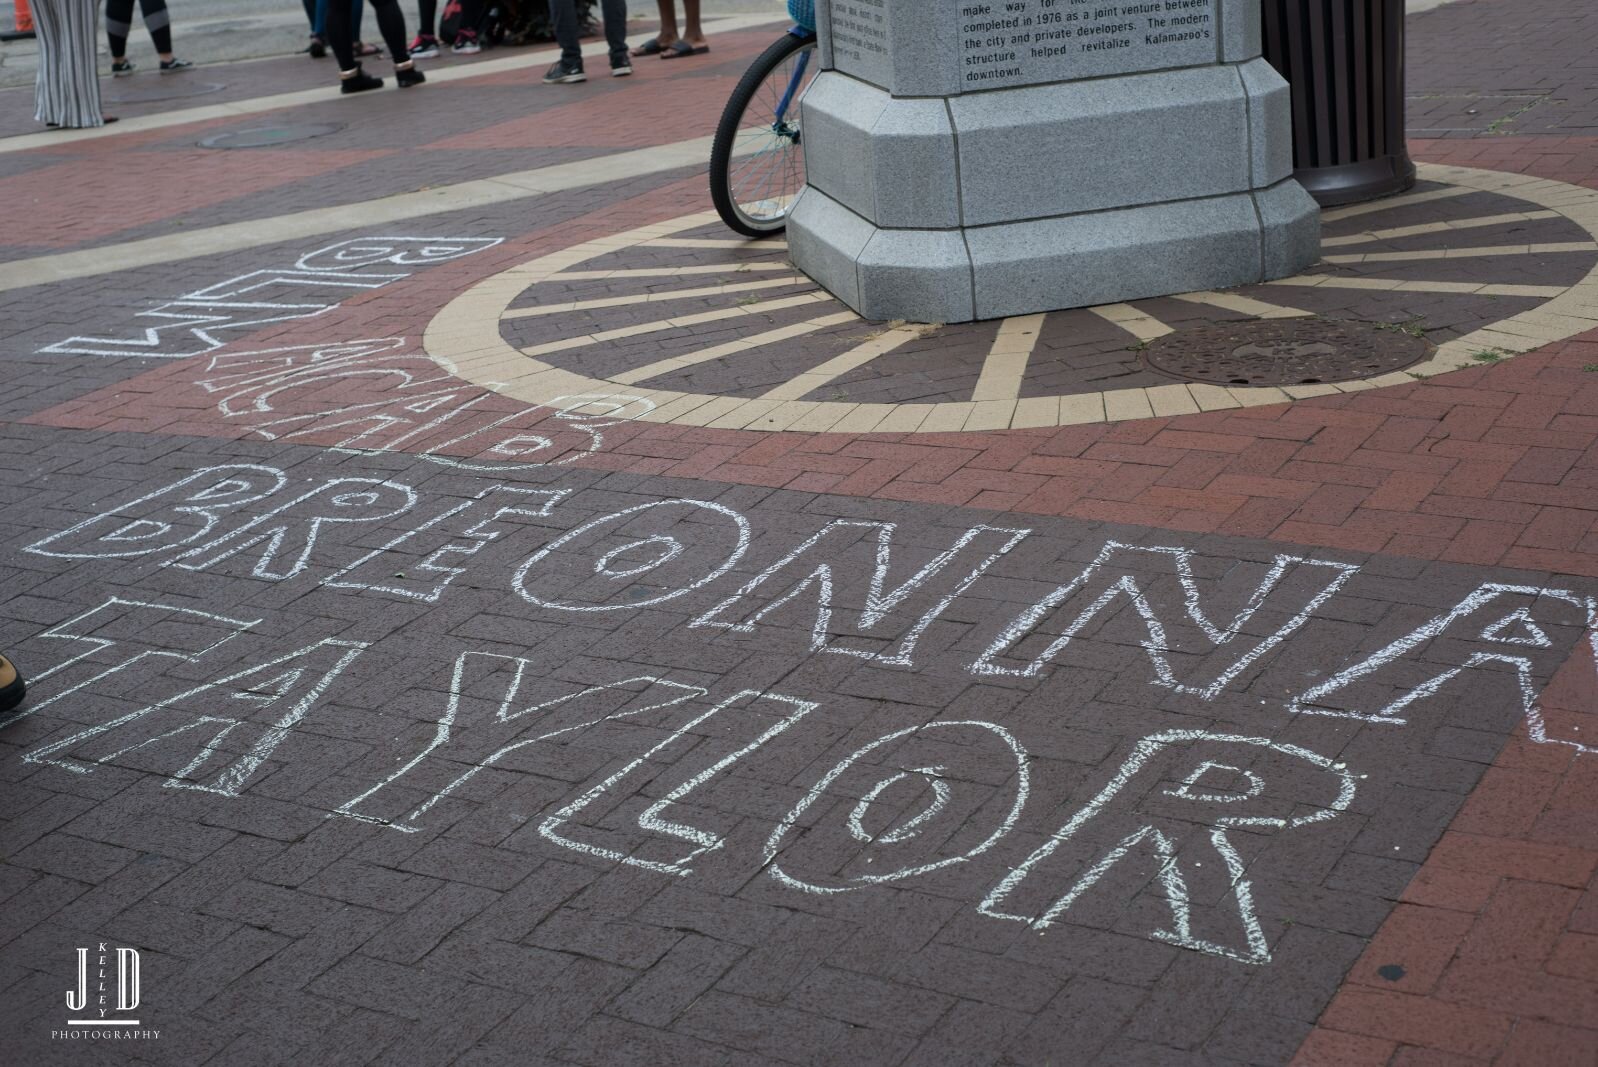 make way for the
completed in 1976 as a joint venture between
the city and private developers. The modern
structure helped revitalize Kalamazoo's
downtown.
BLM
ACAB
BREONNA
TAYLOR
JD
KELLEY
PHOTOGRAPHY